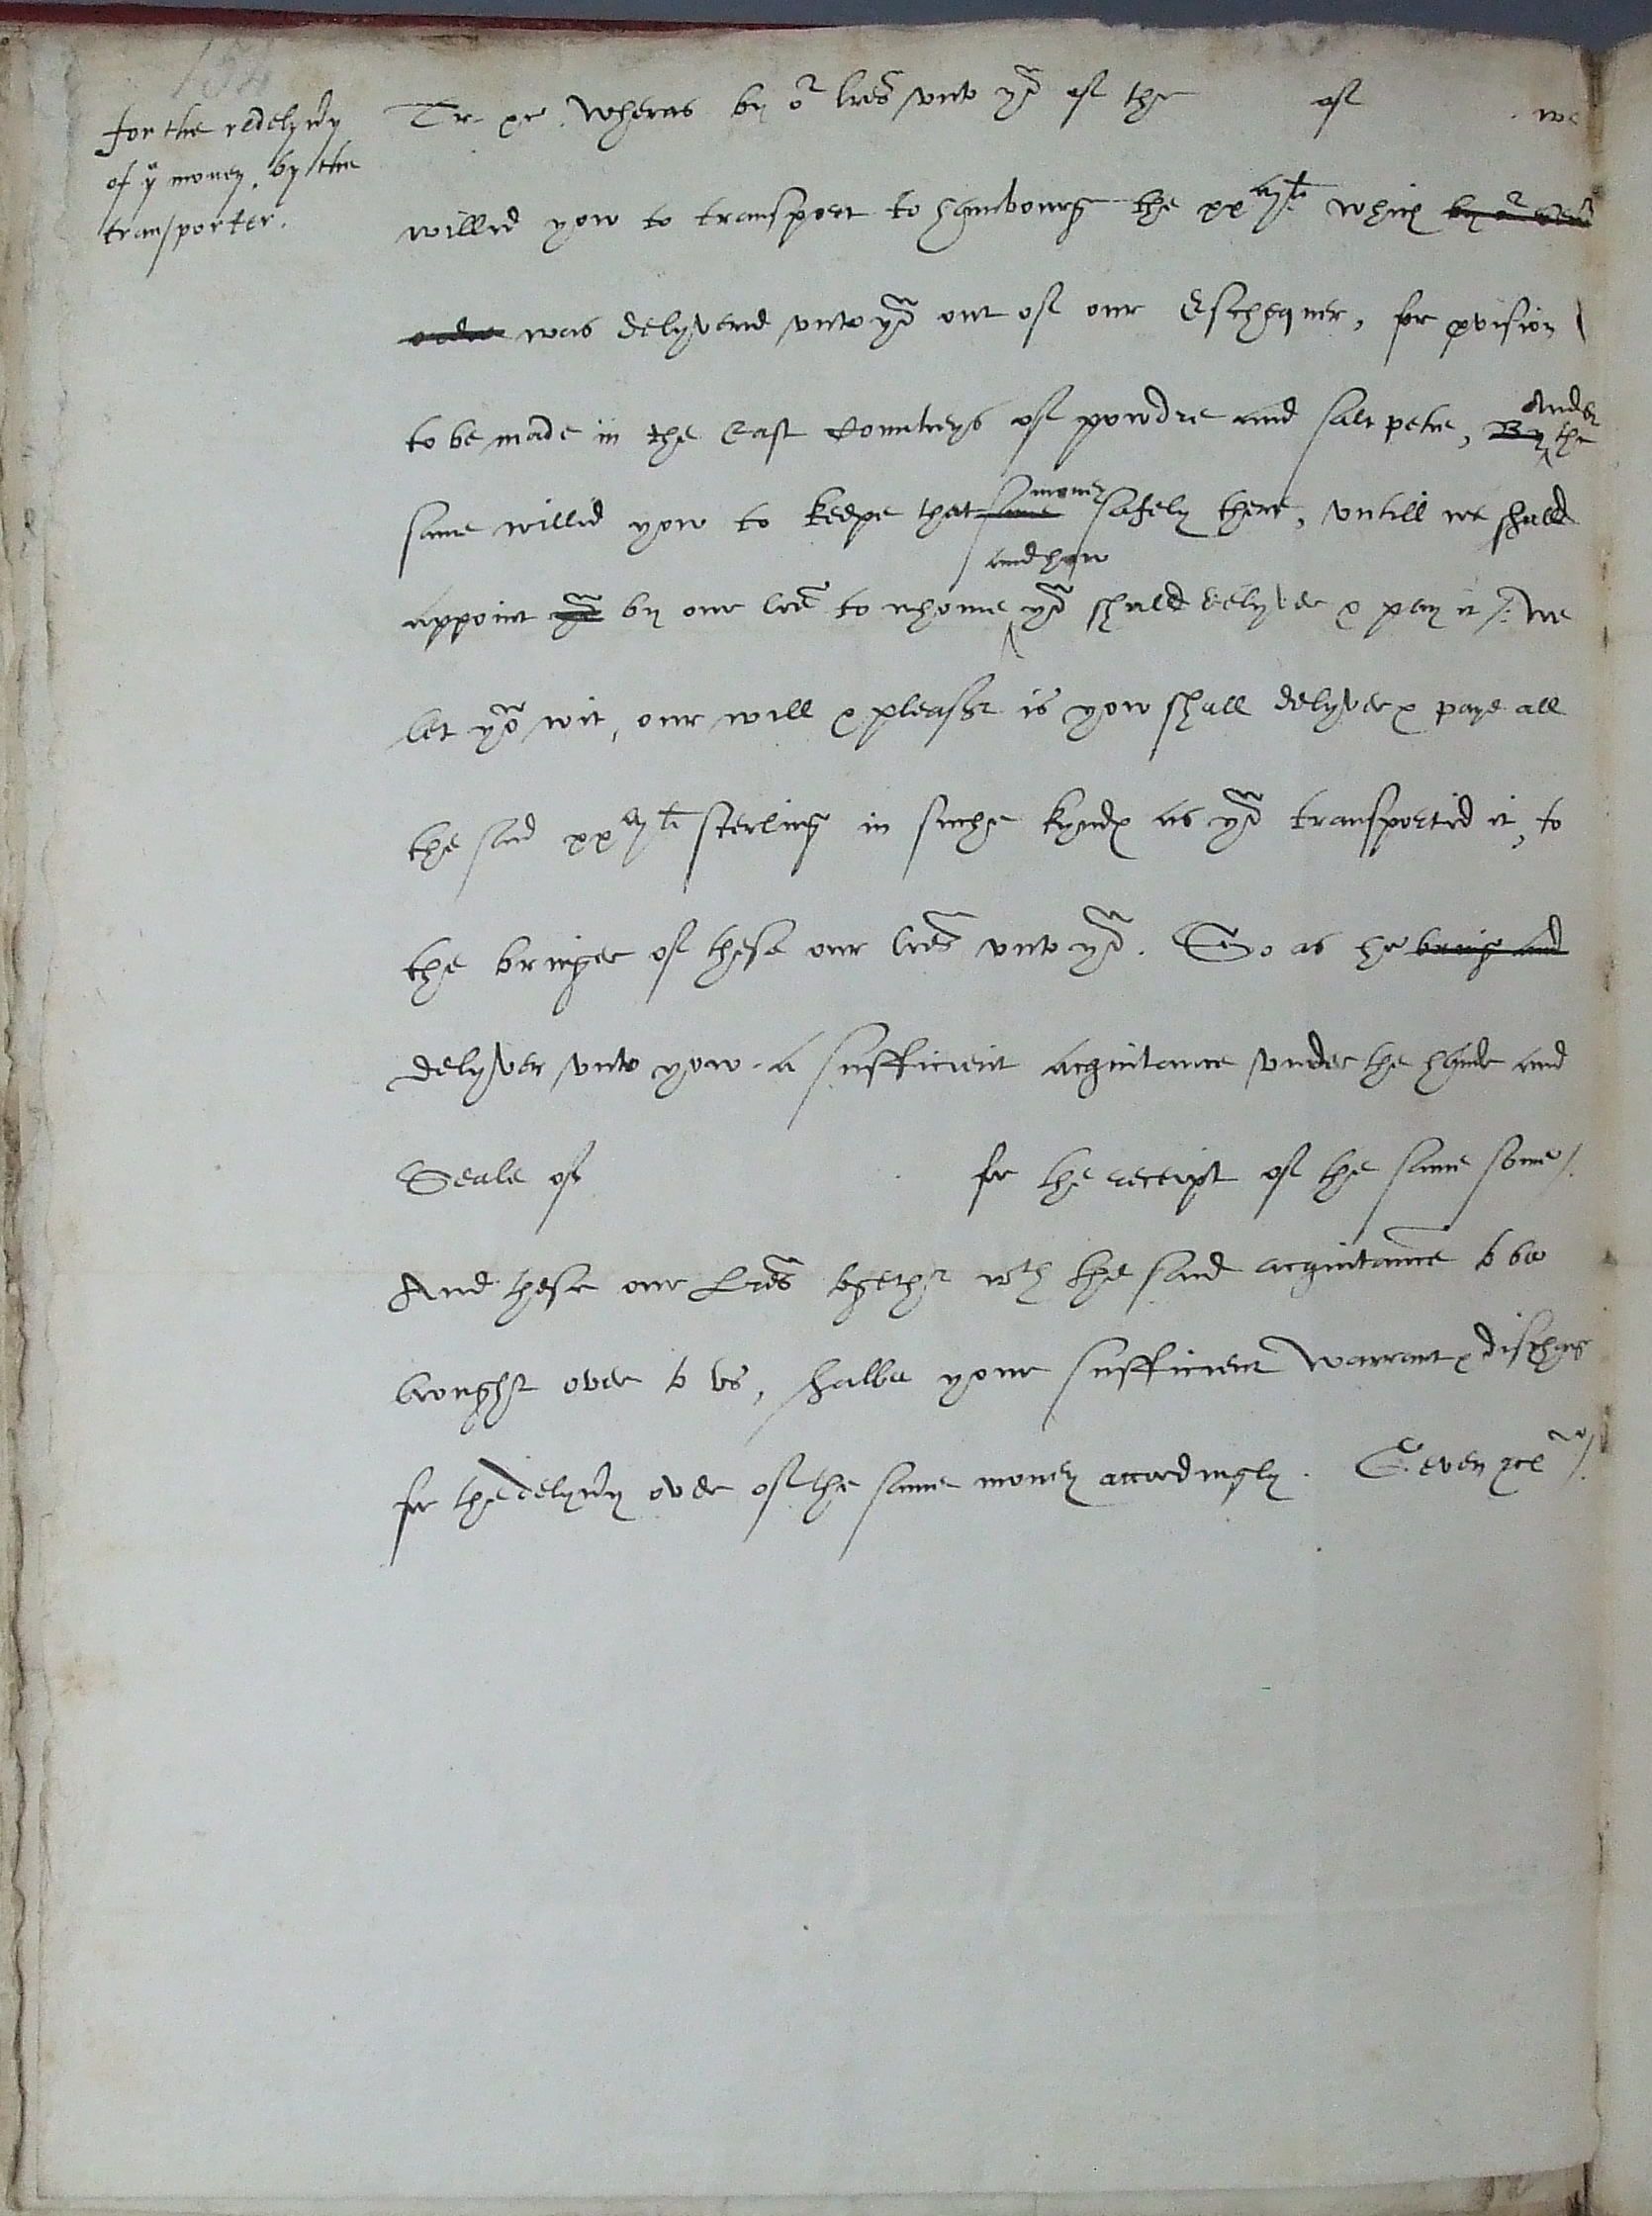 154
for the redelyu'y
of yͤ money, by the
transporter.
Tr. &c. Wheras by oʳ lres vnto yoͧ of the of . we
willed yow to transport to hambourg the xxᵐˡ which by oʳ
ordre was delyvered vnto yoͧ out of our Eschequer, for p'uision
to be made in the East Countreys of powdre and salt petre, By And by the
same willed yow to keepe that same money safely there, vntill we shuld
appoint yoͧ by our lres to whome and how yoͧ shuld delyver & pay it /. we
let yoͧ wit, our will & pleasʳ is yow shall delyver & paye all
the said xxᵐˡ sterling in suche kynde as yoͧ transported it, to
the bringer of these our lres vnto yoͧ. So as he bring and
delyver vnto yow a sufficient acquitance vnder the hande and
Seale of for the receipt of the same some /.
And these our Lres togethʳ wᵗʰ the said acquitance to be
brought over to vs, shalbe your sufficient warrant & discharg
for the delyu'y over of the same money accordingly. Geven &c /.